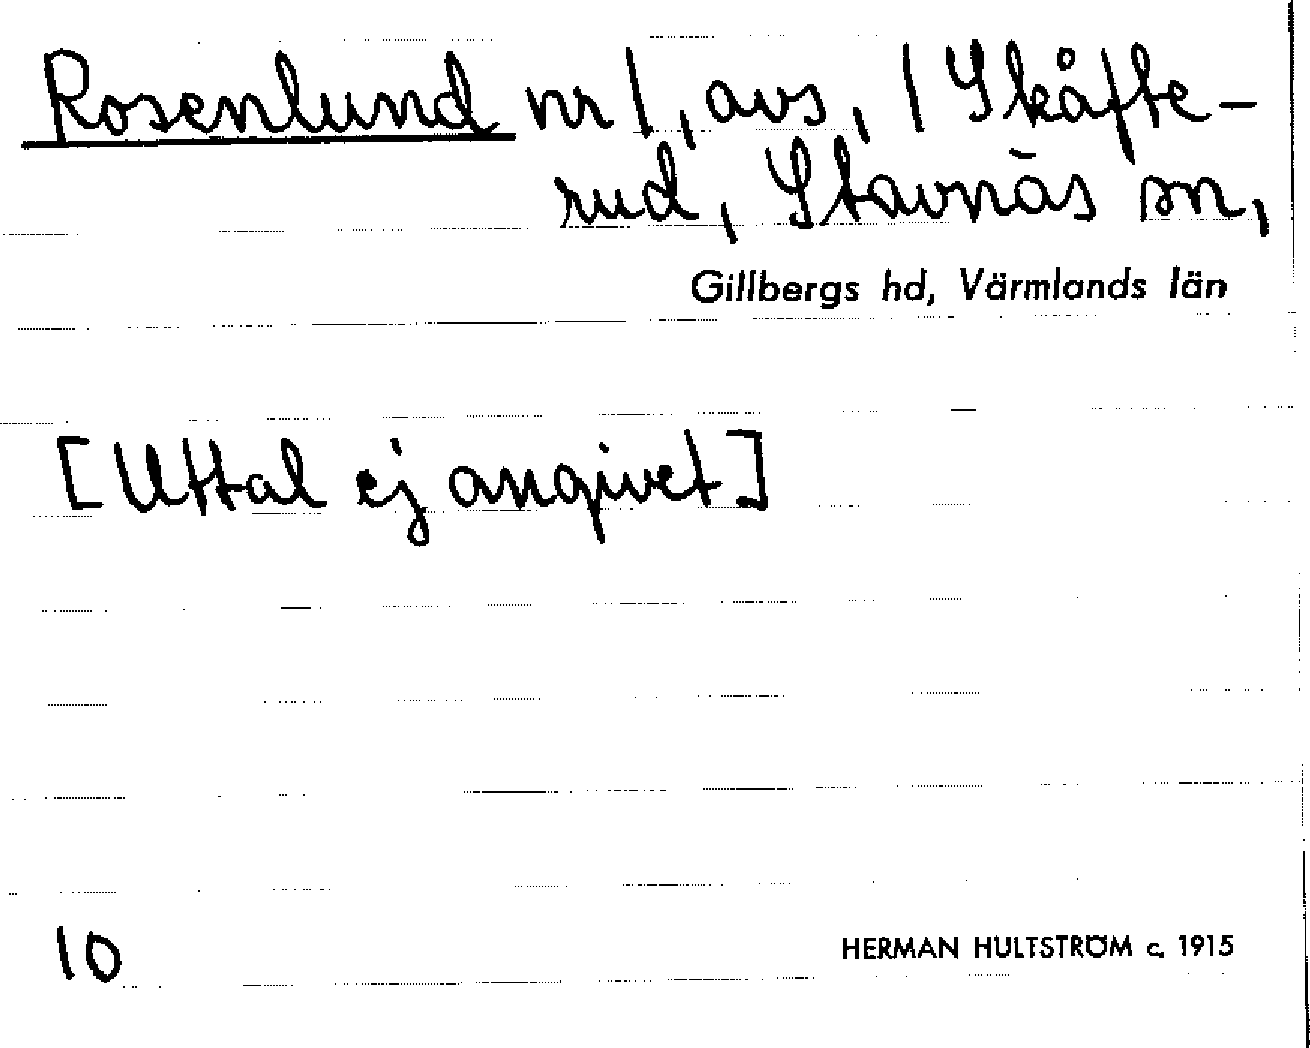 Rosenlund nr 1, avs, 1 Skåfte-
rud, Stavnäs sn,
Gillbergs hd, Värmlands län
[Uttal ej angivet]
10
HERMAN HULTSTRÖM c. 1915